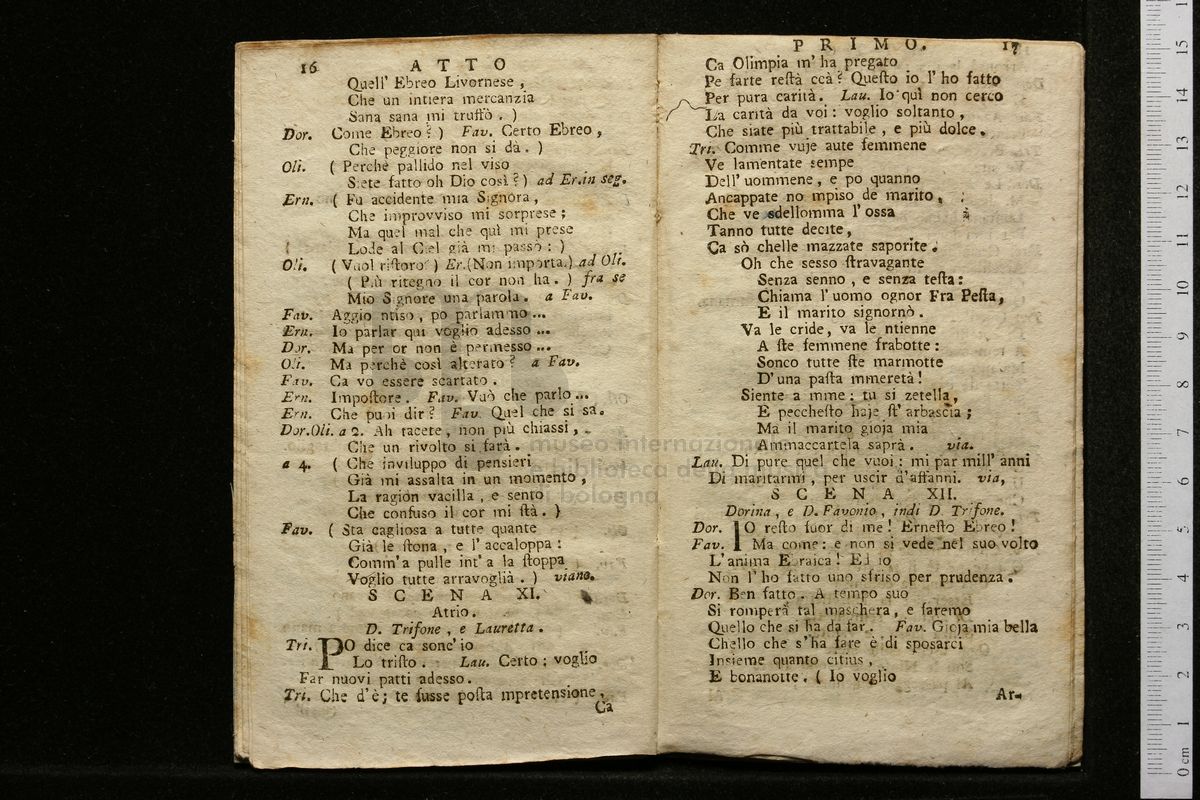 16 ATTO
Quell' Ebreo Livornese,
Che un intiera mercanzia
Sana sana mi truffò. )
Dor. Come Ebreo? ) Fav. Certo Ebreo,
Che peggiore non si dà. )
Oli. ( Perchè pallido nel viso
Siete fatto oh Dio così? ) ad Er. in seg.
Ern. ( Fu accidente mia Signora,
Che improvviso mi sorprese;
Ma quel mal che quì mi prese
Lode al Ciel già mi passò: )
Oli. ( Vuol ristoro? ) Er. (Non importa.) ad Oli.
( Più ritegno il cor non ha. ) fra se
Mio Signore una parola. a Fav.
Fav. Aggio ntiso, po parlammo...
Ern. Io parlar quì voglio adesso...
Dor. Ma per or non è permesso...
Oli. Ma perchè così alterato? a Fav.
Fav. Ca vo essere scartato.
Ern. Impostore. Fav. Vuò che parlo...
Ern. Che puoi dir? Fav. Quel che si sa.
Dor. Oli. a 2. Ah tacete, non più chiassi,
Che un rivolto si farà.
a 4. ( Che inviluppo di pensieri
Già mi assalta in un momento,
La ragion vacilla, e sento
Che confuso il cor mi stà. )
Fav. ( Sta cagliosa a tutte quante
Già le stona, e l' accaloppa:
Comm'a pulle int' a la stoppa
Voglio tutte arravoglià. ) viano.
SCENA XI.
Atrio.
D. Trifone, e Lauretta.
Tri. PO dice ca sonc' io
Lo tristo. Lau. Certo: voglio
Far nuovi patti adesso.
Tri. Che d'è; te fusse posta mpretensione,
Ca
PRIMO. 17
Ca Olimpia m' ha pregato
Pe farte restà ccà? Questo io l' ho fatto
Per pura carità. Lau. Io quì non cerco
La carità da voi: voglio soltanto,
Che siate più trattabile, e più dolce.
Tri. Comme vuje aute femmene
Ve lamentate sempe
Dell' uommene, e po quanno
Ancappate no mpiso de marito,
Che ve sdellomma l' ossa
Tanno tutte decite,
Ca sò chelle mazzate saporite.
Oh che sesso stravagante
Senza senno, e senza testa:
Chiama l' uomo ognor Fra Pesta,
E il marito signornò.
Va le cride, va le ntienne
A ste femmene frabotte:
Sonco tutte ste marmotte
D' una pasta mmeretà!
Siente a mme: tu si zetella,
E pecchesto haje st' arbascia;
Ma il marito gioja mia
Ammaccartela saprà. via.
Lau. Di pure quel che vuoi: mi par mill' anni
Di maritarmi, per uscir d'affanni. via,
SCENA XII.
Dorina, e D. Favonio, indi D. Trifone.
Dor. IO resto fuor di me! Ernesto Ebreo!
Fav. Ma come: e non si vede nel suo volto
L' anima Ebraica! Ed io
Non l' ho fatto uno sfriso per prudenza.
Dor. Ben fatto. A tempo suo
Si romperà tal maschera, e faremo
Quello che si ha da far. Fav. Gioja mia bella
Chello che s' ha fare è di sposarci
Insieme quanto citius,
E bonanotte. ( Io voglio
Ar-